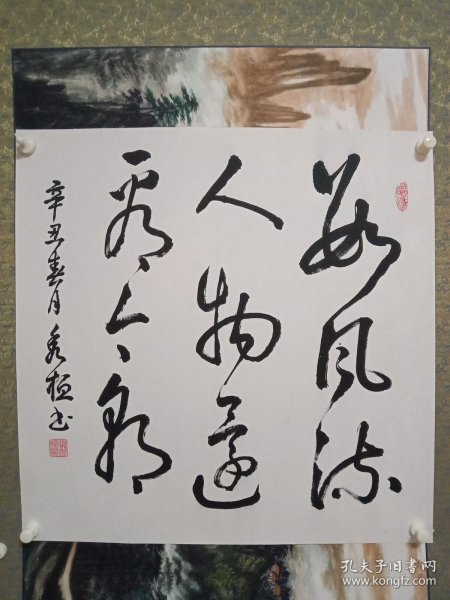 数风流
人物还
看今朝
辛丑春月秀桓书
孔夫子旧书网
www.kongfz.com